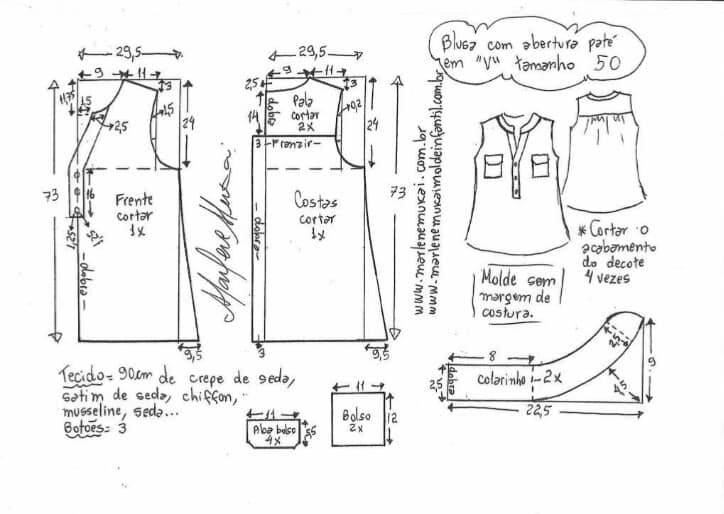 Blusa com abertura patê
em "V" tamanho 50
29,5
9
11
3
11,75
1,5
2,5
1,5
24
73
16
Frente
cortar
1x
1,25
1,25
dobra
9,5
Marlene Mukai
29,5
9
11
3
2,5
dobra
14
Pala
cortar
2x
0,2
24
3
Franzir
Costas
cortar
1x
dobra
73
3
9,5
www.marlenemukai.com.br
www.marlenemukaimoldeinfantil.com.br
* Cortar o
acabamento
do decote
4 vezes
Molde sem
margem de
costura.
8
2,5
dobra
colarinho
2x
2,5
4,5
9
22,5
Tecido= 90cm de crepe de seda,
satim de seda, chiffon,
musseline, seda...
Botões= 3
11
Aba bolso
4x
5,5
11
Bolso
2x
12